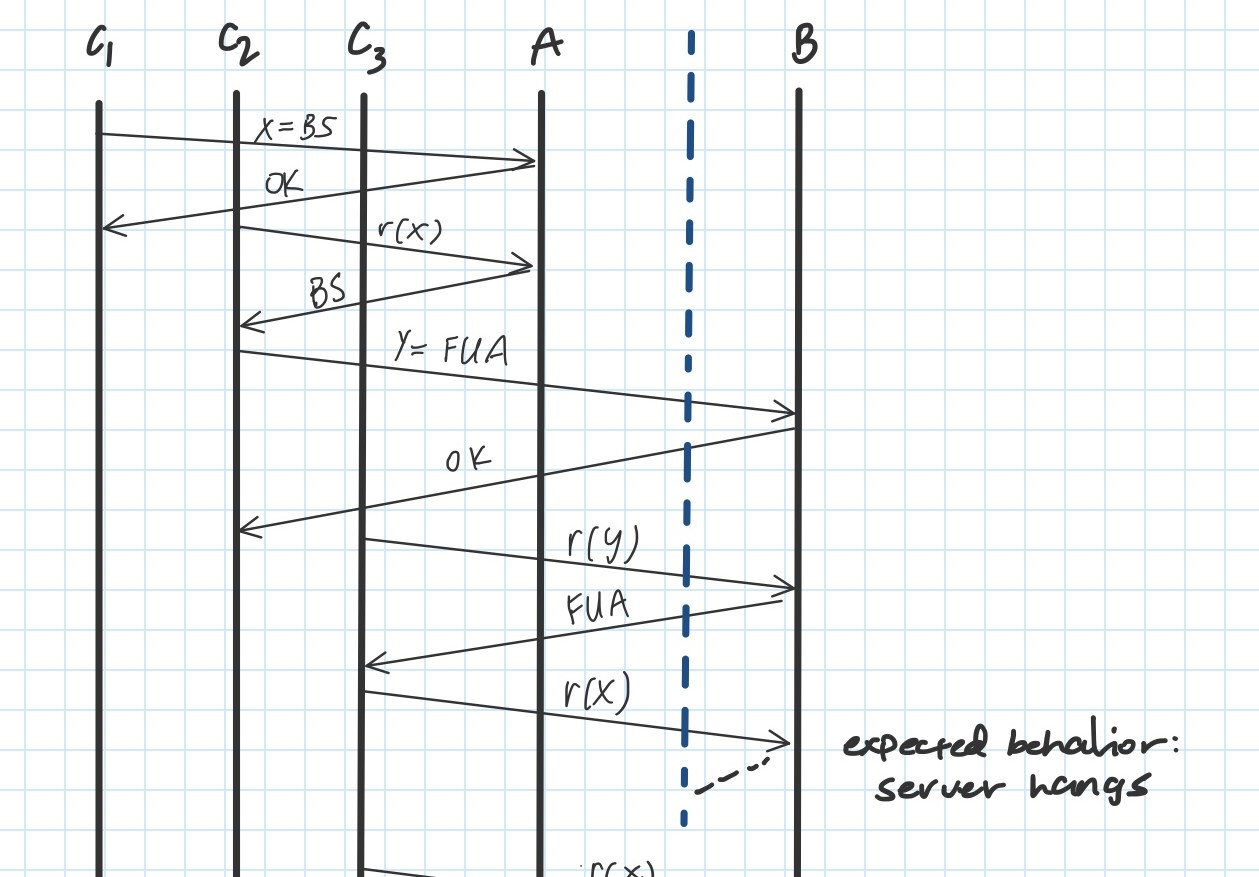 C1 C2 C3 A B
x=BS
OK
r(x)
BS
y= FUA
OK
r(y)
FUA
r(x)
expected behavior:
server hangs
r(x)